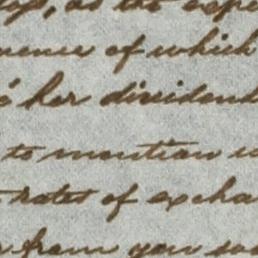 as the expe
uence of which
her dividend
to mention
rates of excha
from you